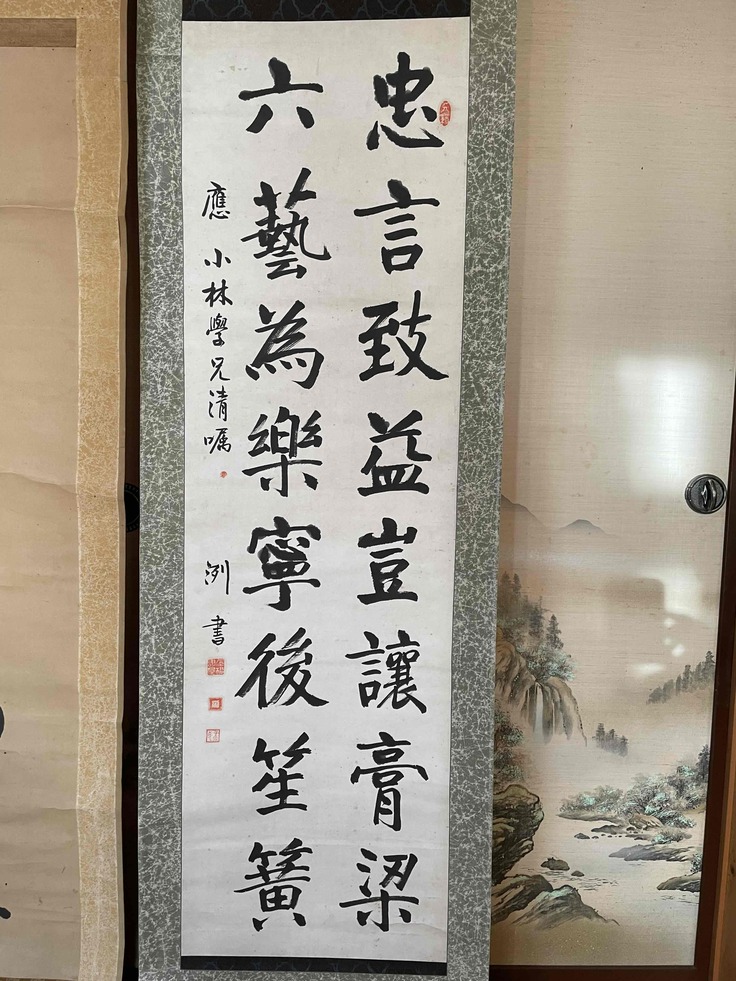 忠言致益豈讓膏粱
六藝為樂寧後笙簧
應 小林學兄清囑
洌 書